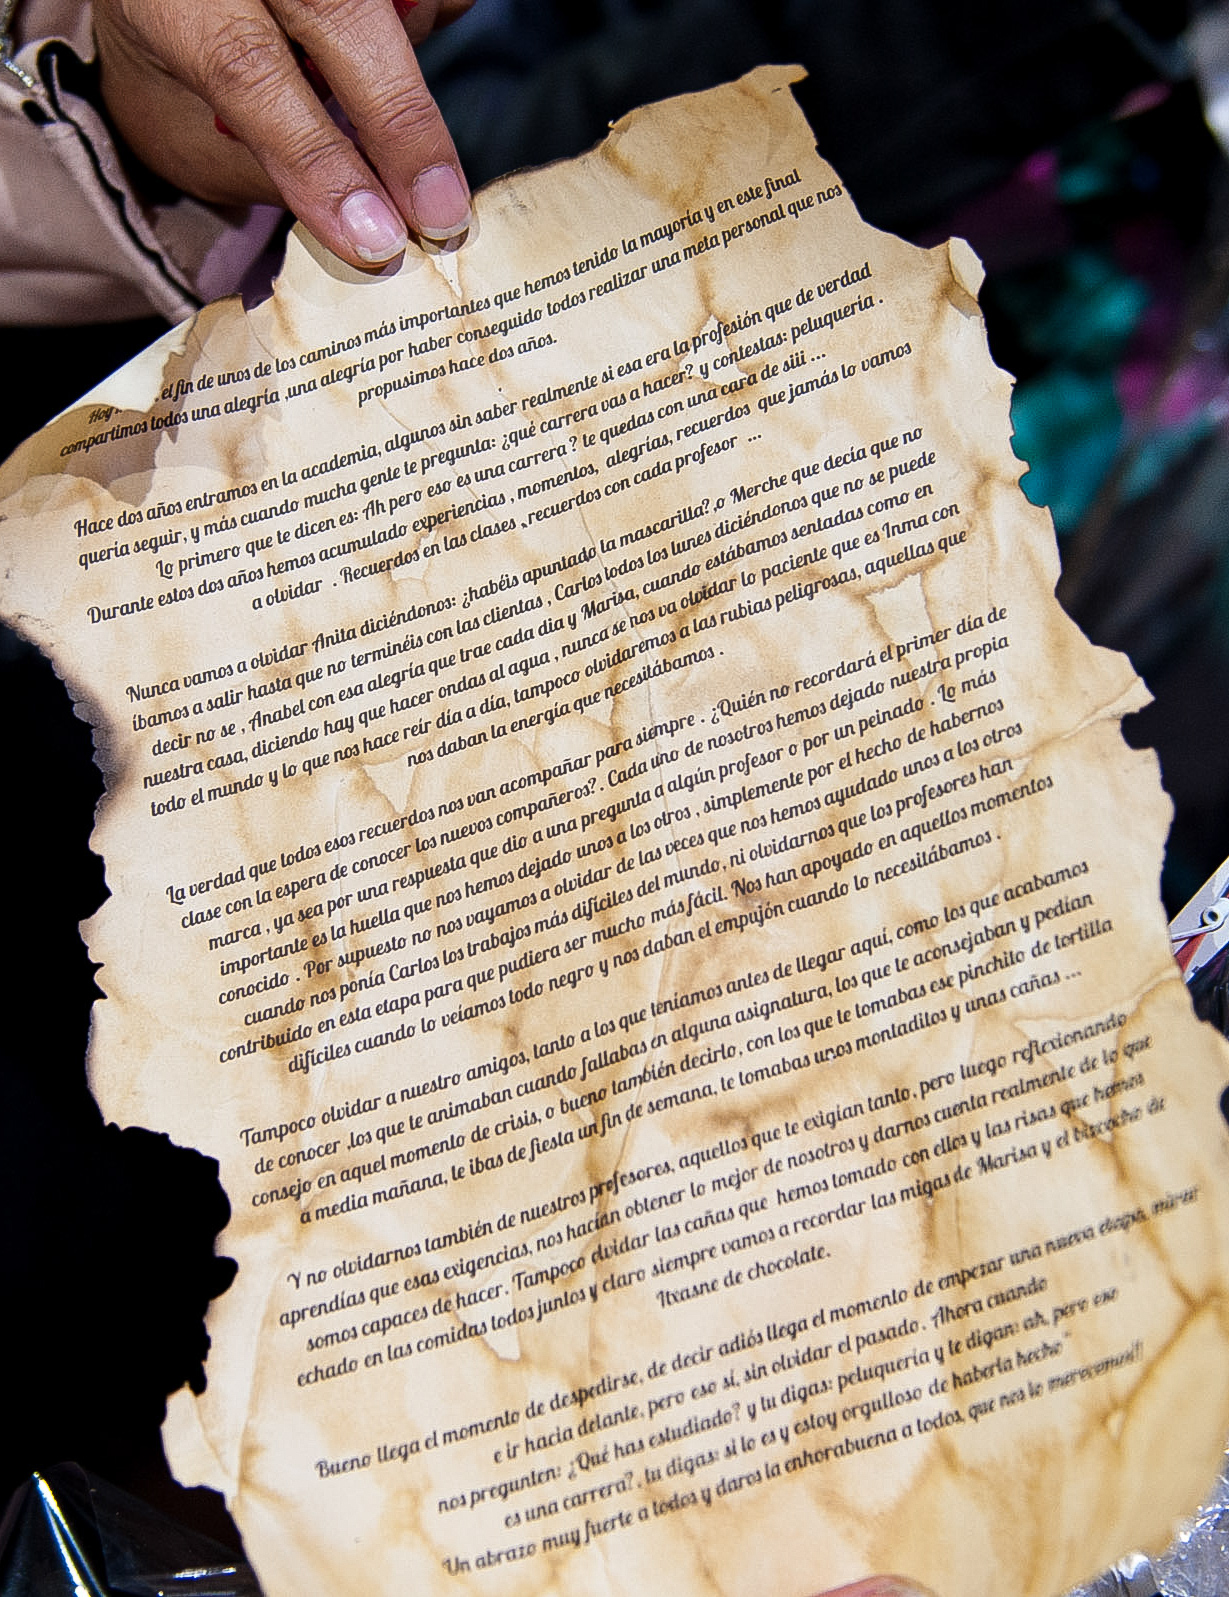 Hoy el fin de unos de los caminos más importantes que hemos tenido la mayoría y en este final
compartimos todos una alegría ,una alegría por haber conseguido todos realizar una meta personal que nos
propusimos hace dos años.
Hace dos años entramos en la academia, algunos sin saber realmente si esa era la profesión que de verdad
quería seguir, y más cuando mucha gente te pregunta: ¿qué carrera vas a hacer? y contestas: peluquería .
Lo primero que te dicen es: Ah pero eso es una carrera ? te quedas con una cara de siii ...
Durante estos dos años hemos acumulado experiencias , momentos, alegrías, recuerdos que jamás lo vamos
a olvidar . Recuerdos en las clases , recuerdos con cada profesor ...
Nunca vamos a olvidar Anita diciéndonos: ¿habéis apuntado la mascarilla? ,o Merche que decía que no
íbamos a salir hasta que no terminéis con las clientas , Carlos todos los lunes diciéndonos que no se puede
decir no se , Anabel con esa alegría que trae cada dia y Marisa, cuando estábamos sentadas como en
nuestra casa, diciendo hay que hacer ondas al agua , nunca se nos va olvidar lo paciente que es Inma con
todo el mundo y lo que nos hace reír día a día, tampoco olvidaremos a las rubias peligrosas, aquellas que
nos daban la energía que necesitábamos .
La verdad que todos esos recuerdos nos van acompañar para siempre . ¿Quién no recordará el primer día de
clase con la espera de conocer los nuevos compañeros? . Cada uno de nosotros hemos dejado nuestra propia
marca , ya sea por una respuesta que dio a una pregunta a algún profesor o por un peinado . Lo más
importante es la huella que nos hemos dejado unos a los otros , simplemente por el hecho de habernos
conocido . Por supuesto no nos vayamos a olvidar de las veces que nos hemos ayudado unos a los otros
cuando nos ponía Carlos los trabajos más difíciles del mundo, ni olvidarnos que los profesores han
contribuido en esta etapa para que pudiera ser mucho más fácil. Nos han apoyado en aquellos momentos
difíciles cuando lo veíamos todo negro y nos daban el empujón cuando lo necesitábamos .
Tampoco olvidar a nuestro amigos, tanto a los que teníamos antes de llegar aquí, como los que acabamos
de conocer ,los que te animaban cuando fallabas en alguna asignatura, los que te aconsejaban y pedían
consejo en aquel momento de crisis, o bueno también decirlo, con los que te tomabas ese pinchito de tortilla
a media mañana, te ibas de fiesta un fin de semana, te tomabas unos montaditos y unas cañas ...
Y no olvidarnos también de nuestros profesores, aquellos que te exigían tanto, pero luego reflexionando
aprendías que esas exigencias, nos hacían obtener lo mejor de nosotros y darnos cuenta realmente de lo que
somos capaces de hacer. Tampoco olvidar las cañas que hemos tomado con elles y las risas que hemos
echado en las comidas todos juntos y claro siempre vamos a recordar las migas de Marisa y el bizcocho de
Itxasne de chocolate.
Bueno llega el momento de despedirse, de decir adiós llega el momento de empezar una nueva etapa, mirar
e ir hacia delante, pero eso sí, sin olvidar el pasado . Ahora cuando
nos pregunten: ¿Qué has estudiado? y tu digas: peluquería y te digan: ah, pero eso
es una carrera? , tu digas: si lo es y estoy orgulloso de haberla hecho"
Un abrazo muy fuerte a todos y daros la enhorabuena a todos, que nos lo merecemos!!